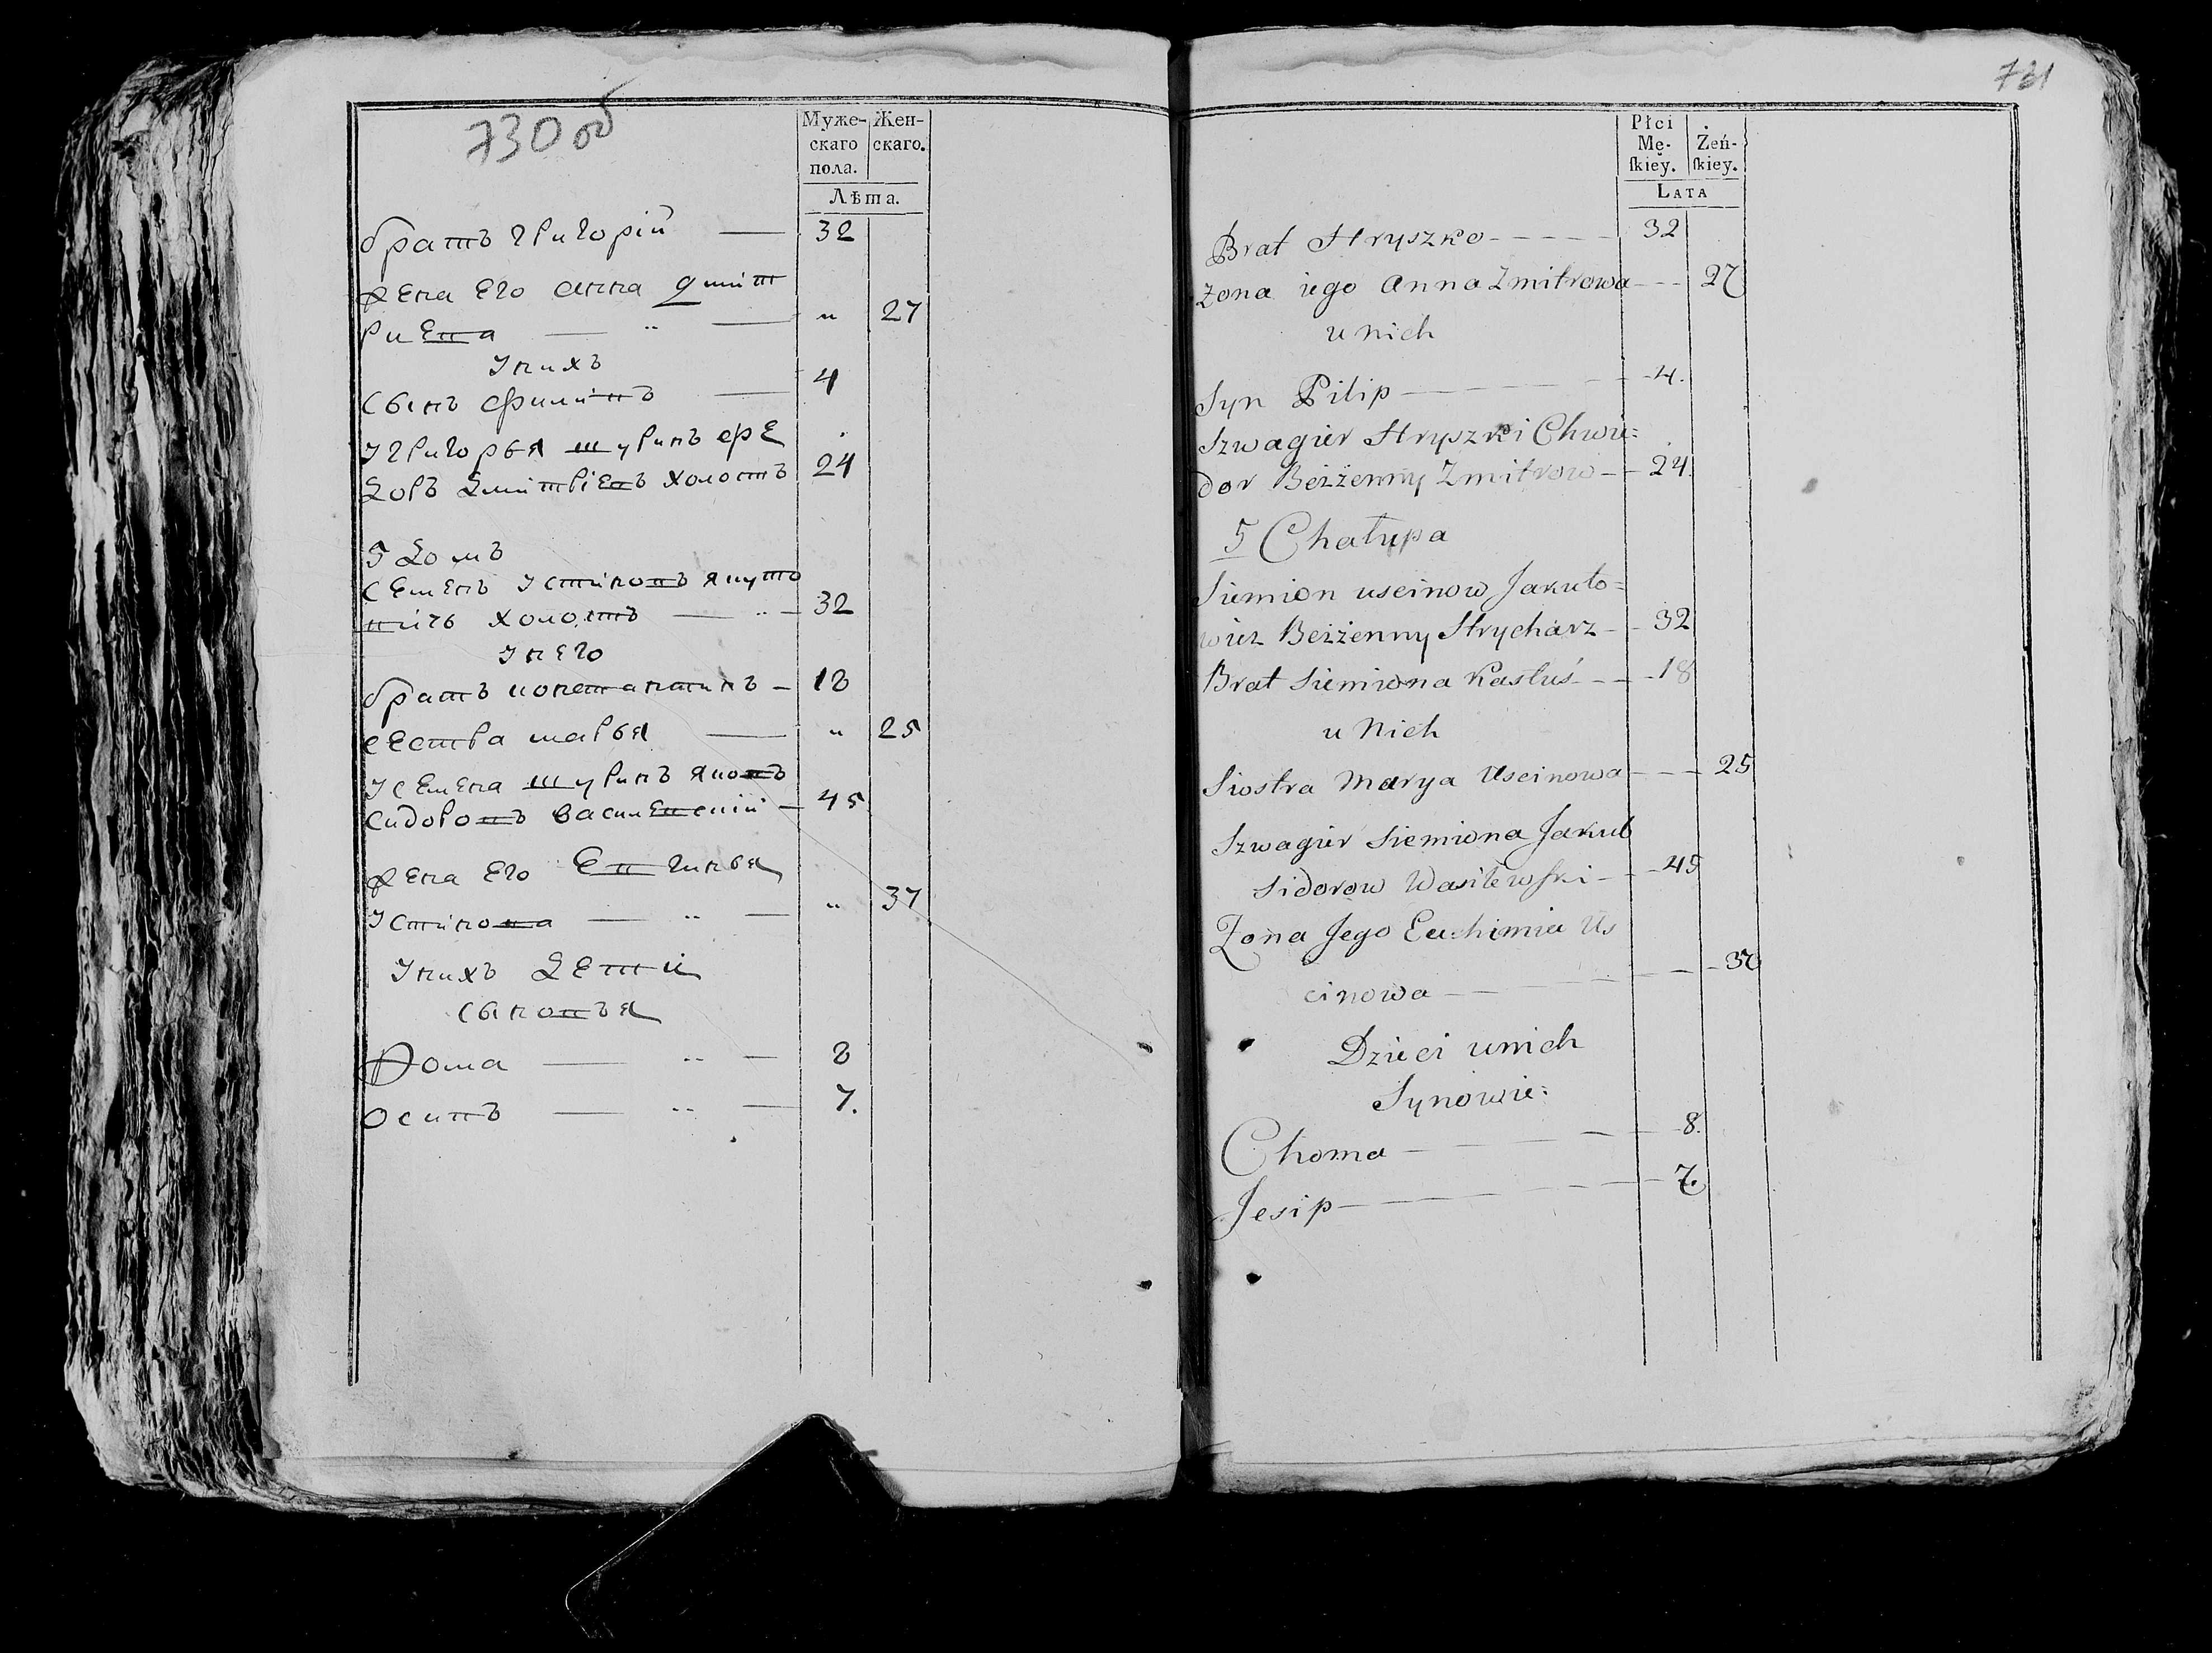 730об
Муже-
скаго
пола.
Жен-
скаго.
Лѣта.
братъ григорій — 32
жена Его анна дмит
риЕва — " — " 27
у нихъ
сынъ филипъ — 4
у григорья шуринъ фе
доръ дмитріевъ холостъ 24
5 домъ
семенъ устиновъ якуто
вичь холостъ — " — 32
у него
братъ констанътинъ — 18
сестра марья — " 25
у семена шуринъ яковъ
сидоровъ василевскій — 45
жена Его Евгинья
устинова — " — " 37
у нихъ дети
сыновъя
Фома — " — 8
осипъ — " — 7.
731
Płci
Mę-
ſkiey.
Żeń-
ſkiey.
Lata
Brat Hryszko - - - - - 32
Żona iego Anna Zmitrowa - - - 27
u nich
Syn Pilip - - - 4.
Szwagier Hryszki Chwie=
dor Beżżenny Zmitrow - - 24
5 Chałupa
Siemion uscinow Jakuto=
wicz Beżżenny Strycharz - - 32
Brat Siemiona Kastuś - - - 18
u Nich
Siostra Marya Uscinowa - - - 25
Szwagier Siemiona Jakub
Sidorow Wasilewſki - - - 45
Żona Jego Euchimia Us
cinowa - - - 37
Dzieci unich
Synowie:
Choma - - - 8.
Jesip - - - 7.